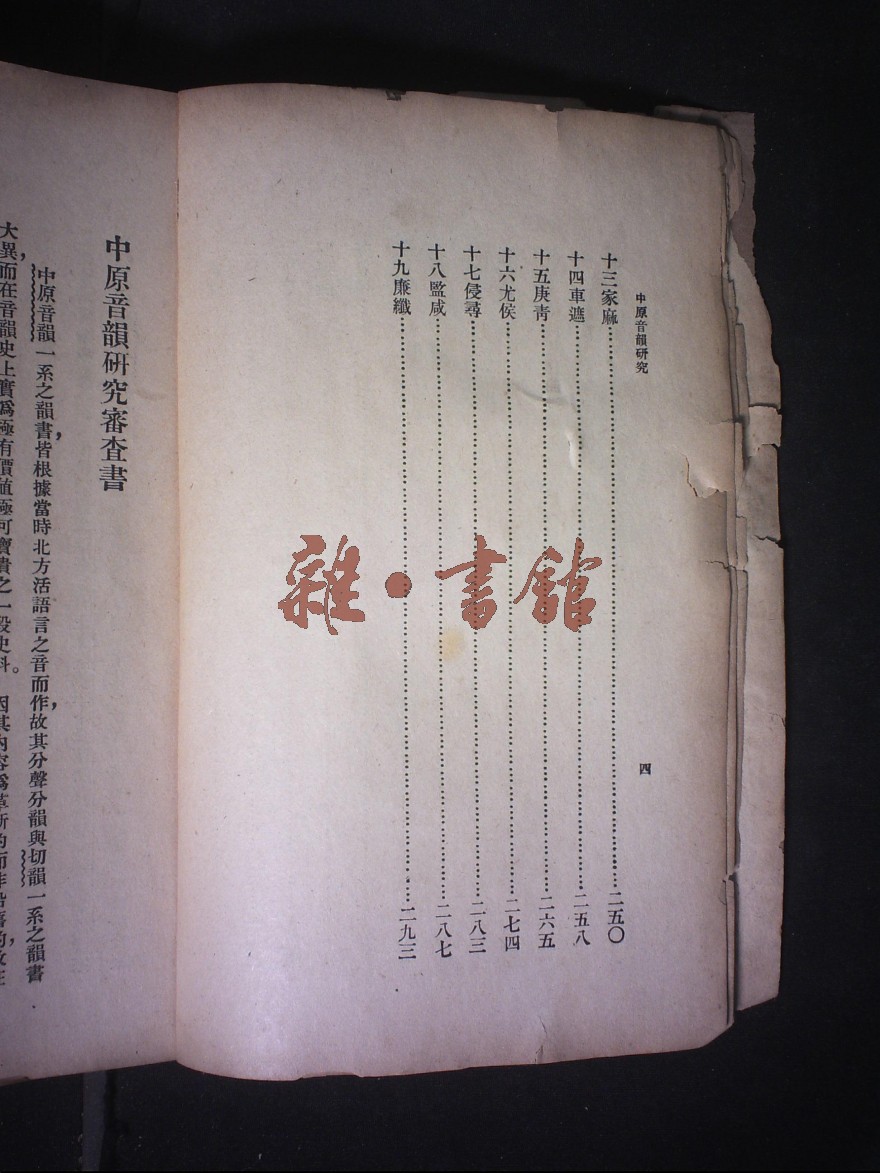 中原音韻研究
四
十三家麻……二五〇
十四車遮……二五八
十五庚青……二六五
十六尤侯……二七四
十七侵尋……二八三
十八監咸……二八七
十九廉纖……二九三
雜·書館
中原音韻研究審查書
中原音韻一系之韻書，皆根據當時北方活語言之音而作，故其分聲分韻與切韻一系之韻書
大異，而在音韻史上實爲極有價值極可寶貴之一段史料。因其內容爲革新的而非沿舊的，故在